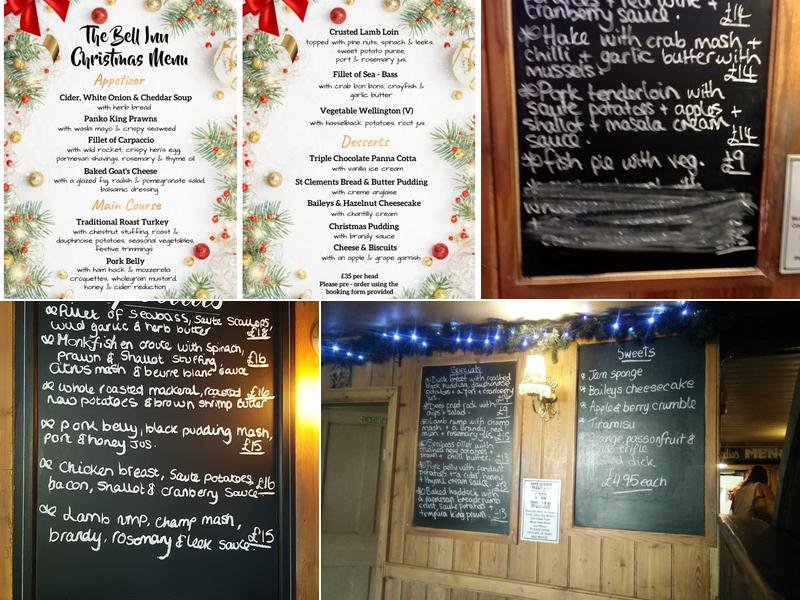 The Bell Inn
Christmas Menu
Appetizer
Cider, White Onion & Cheddar Soup
with herb bread
Panko King Prawns
with wasbi mayo & crispy seaweed
Fillet of Carpaccio
with wild rocket, crispy hen's egg,
parmesan shavings, rosemary & thyme oil
Baked Goat's Cheese
with a glazed fig, radish & pomegranate salad,
balsamic dressing
Main Course
Traditional Roast Turkey
with chestnut stuffing, roast &
dauphinoise potatoes, seasonal vegetables,
festive trimmings
Pork Belly
with ham hock & mozzerella
croquettes, wholegrain mustard,
honey & cider reduction
Crusted Lamb Loin
topped with pine nuts, spinach & leeks,
sweet potato puree,
port & rosemary jus,
Fillet of Sea - Bass
with crab bon bons, crayfish &
garlic butter
Vegetable Wellington (V)
with hasselback potatoes, root jus
Desserts
Triple Chocolate Panna Cotta
with vanilla ice cream
St Clements Bread & Butter Pudding
with creme anglaise
Baileys & Hazelnut Cheesecake
with chantilly cream
Christmas Pudding
with brandy sauce
Cheese & Biscuits
with an apple & grape garnish
£35 per head
Please pre - order using the
booking form provided
+ red wine +
cranberry sauce. £14
Hake with crab mash +
chilli + garlic butter with
mussels £14
Pork tenderloin with
saute potatoes + apples +
shallot + masala cream
sauce £14
fish pie with veg. £9
Fillet of Seabass, Saute Scallops
wild garlic & herb butter £18
Monkfish en croute with spinach,
prawn & Shallot stuffing, £16
Citrus mash & beurre blanc sauce
whole roasted mackeral, roasted £16
new potatoes & brown shrimp butter
Pork belly, black pudding mash,
port & honey Jus. £15
Chicken breast, Saute potatoes, £16
bacon, Shallot & cranberry Sauce
Lamb rump, champ mash,
brandy, rosemary & leek sauce £15
Specials
Duck breast with roasted
black pudding, dauphinoise
potatoes + port + cranberry
Deep fried rock with
chips + salad. £9
Lamb rump with champ
mash + a brandy, red
£15
Seabass fillet with
crushed new potatoes +
prawn + chilli butter. £13
Pork belly with fondant
potatoes + a cider, honey
+ thyme cream sauce. £13
Baked haddock with
a parmesan breadcrumb
crust, saute potatoes +
tempura king prawn. £13
Sweets
Jam sponge
Baileys cheesecake
Apple & berry crumble
Tiramisu
passionfruit &
trifle
dick
£4.95 each
MENU